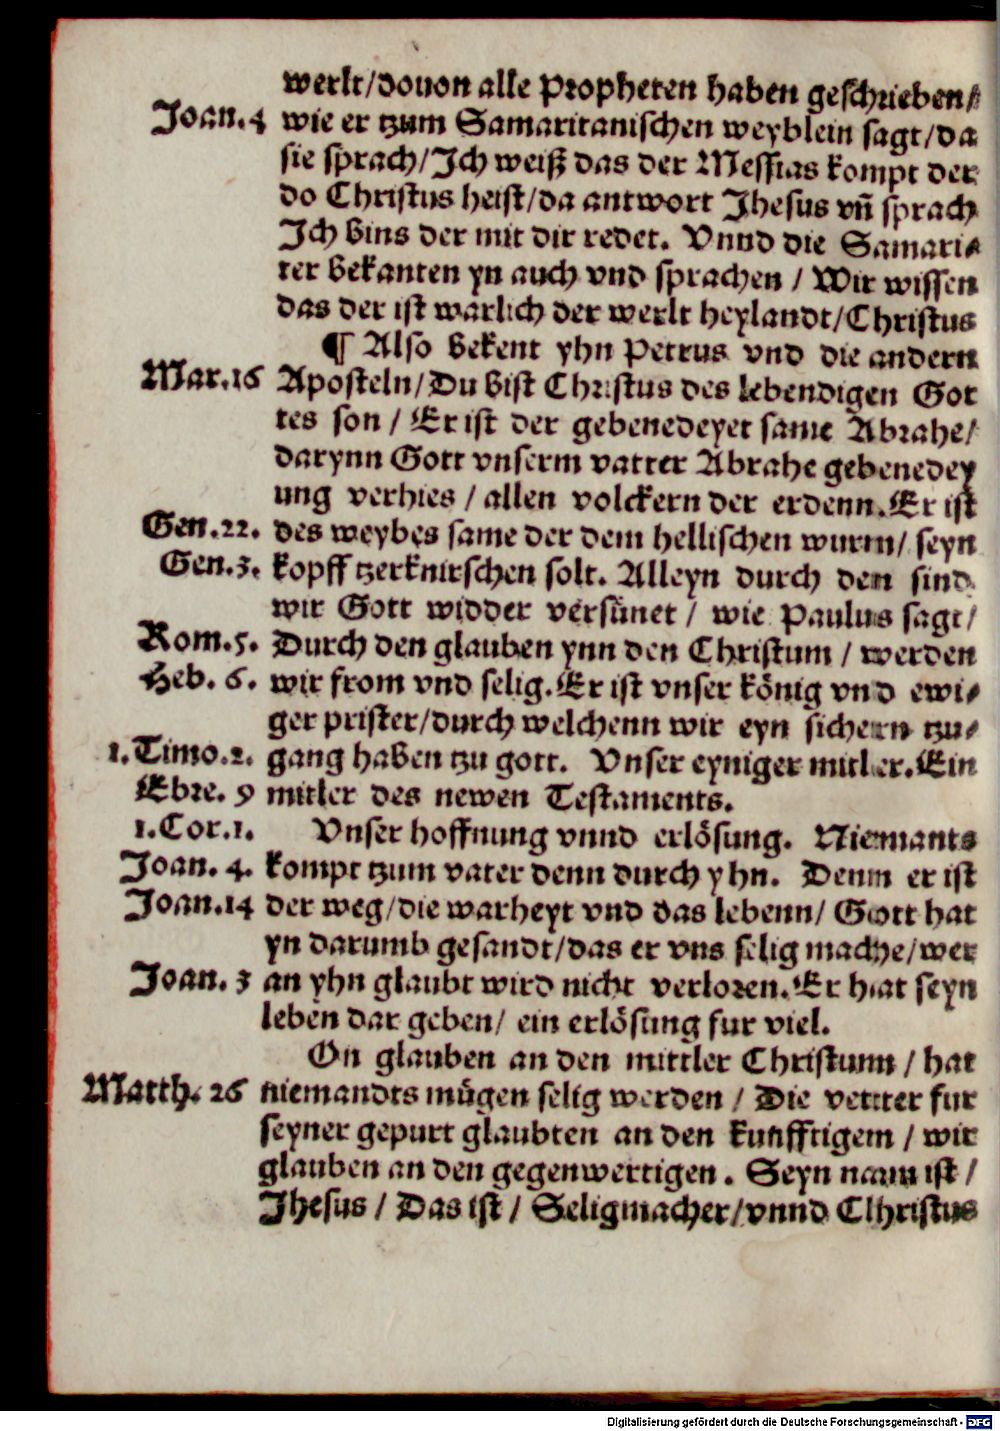 werlt/douon alle Propheten haben geschrieben/
Joan.4 wie er tzum Samaritanischen weyblein sagt/da
sie sprach/Ich weiß das der Messias kompt der
do Christus heist/da antwort Jhesus vñ sprach
Ich bins der mit dir redet. Vnnd die Samari⸗
ter bekanten yn auch vnd sprachen / Wir wissen
das der ist warlich der werlt heylandt/Christus
¶ Also bekent yhn Petrus vnd die andern
Mar.16 Aposteln/Du bist Christus des lebendigen Got
tes son / Er ist der gebenedeyet same Abrahe/
darynn Gott vnserm vatter Abrahe gebenedey
ung verhies / allen volckern der erdenn. Er ist
Gen.22. des weybes same der dem hellischen wurm/ seyn
Gen.3. kopff tzerknirschen solt. Alleyn durch den sind
wir Gott widder versünet / wie Paulus sagt/
Rom.5. Durch den glauben ynn den Christum / werden
Heb. 6. wir from vnd selig. Er ist vnser könig vnd ewi⸗
ger prister/durch welchenn wir eyn sichern tzu⸗
1.Timo.2. gang haben tzu gott. Vnser eyniger mitler. Ein
Ebre. 9 mitler des newen Testaments.
1.Cor.1. Vnser hoffnung vnnd erlösung. Niemants
Joan. 4. kompt tzum vater denn durch yhn. Denn er ist
Joan.14 der weg/die warheyt vnd das lebenn/ Gott hat
yn darumb gesandt/das er vns selig mache/wer
Joan. 3 an yhn glaubt wird nicht verloren. Er hat seyn
leben dar geben/ ein erlösung fur viel.
On glauben an den mittler Christunn / hat
Matth. 26 niemandts mügen selig werden / Die vetter fur
seyner gepurt glaubten an den kunfftigem / wir
glauben an den gegenwertigen . Seyn nam ist /
Jhesus / Das ist / Seligmacher/vnnd Christus
Digitalisierung gefördert durch die Deutsche Forschungsgemeinschaft - DFG